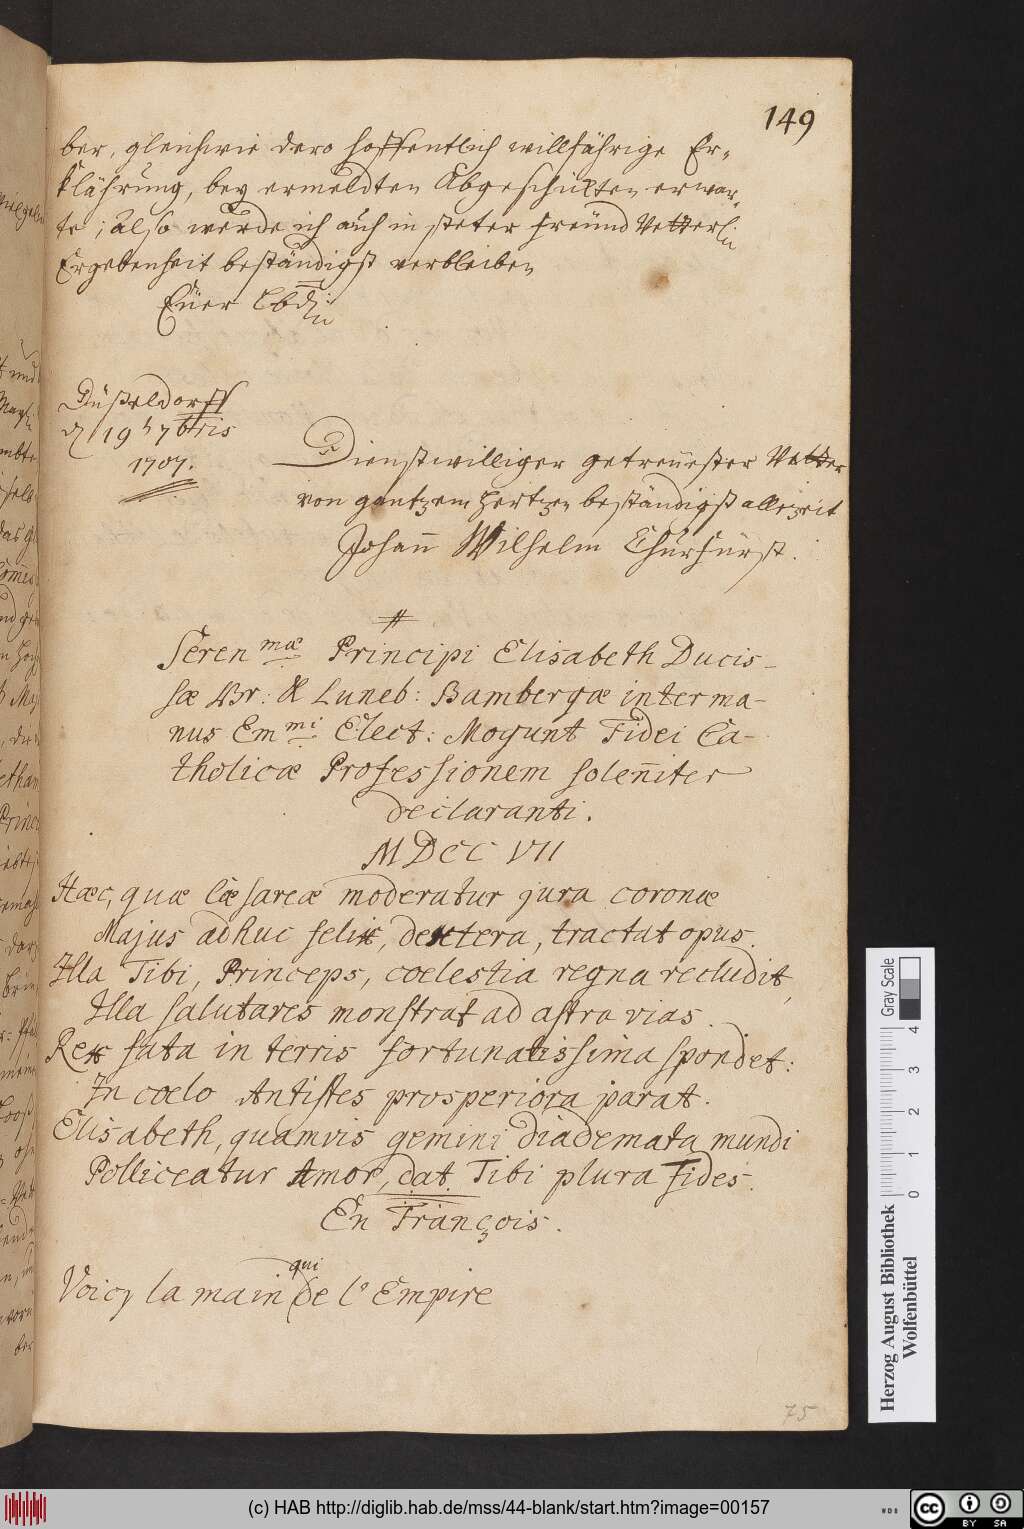 149
ber, gleichwie dero hoffentlich willfährige Er-
klährung, bey ermeldten Abgeschickten erwar-
te; also werde ich auch in steter freünd Vetterl.
Ergebenheit beständigst verbleiben
Eüer Lbdn
Düßeldorff
d 19 h 7bris
1707.
Dienstwilliger getreuester Vetter
von gantzem Hertzen beständigst allezeit
Johann Wilhelm Churfürst.
Seren mæ Principi Elisabeth Ducis-
sæ Br: & Luneb: Bambergæ inter ma-
nus Em mi Elect: Mogunt Fidei Ca-
tholicæ Professionem solen̄iter
declaranti.
MDCC VII
Hæc, quæ Cæsareæ moderatur jura coronæ
Majus adhuc felix, dextera, tractat opus.
Illa Tibi, Princeps, coelestia regna recludit,
Illa salutares monstrat ad astra vias.
Rex fata in terris fortunatissima spondet:
In coelo Antistes prosperiora parat.
Elisabeth, quamvis gemini diademata mundi
Polliceatur Amor, dat Tibi plura Fides.
En François.
Voicy la main qui de l'Empire
75
Gray Scale
0 1 2 3 4
Herzog August Bibliothek
Wolfenbüttel
(c) HAB http://diglib.hab.de/mss/44-blank/start.htm?image=00157
WDB
cc BY SA